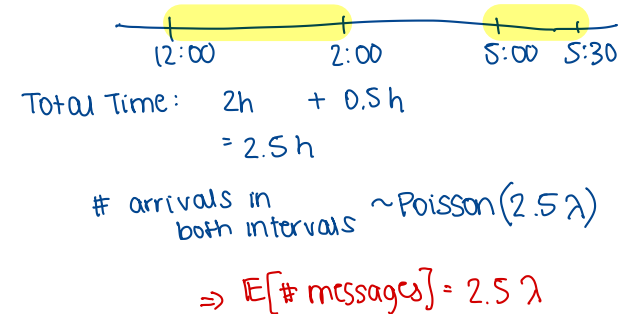 12:00 2:00 5:00 5:30
Total Time: 2h + 0.5h
= 2.5h
# arrivals in
both intervals ~Poisson(2.5λ)
⇒ E[# messages] = 2.5λ